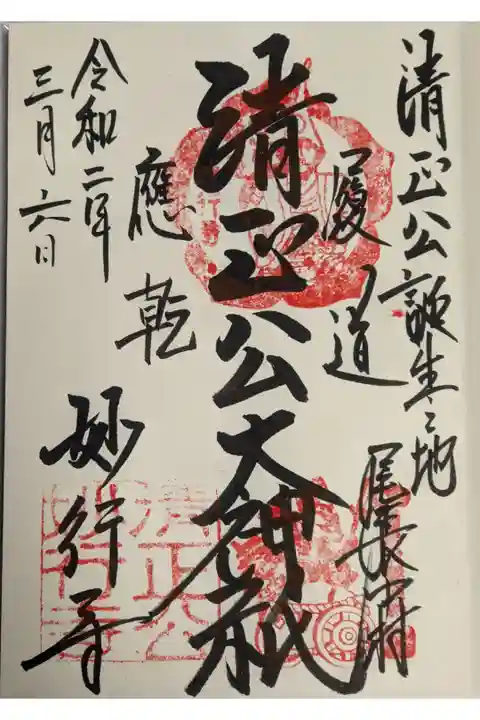 清正公誕生之地
履道
清正公大神祇
應乾
令和二年
三月六日
妙行寺
清正公
妙行寺